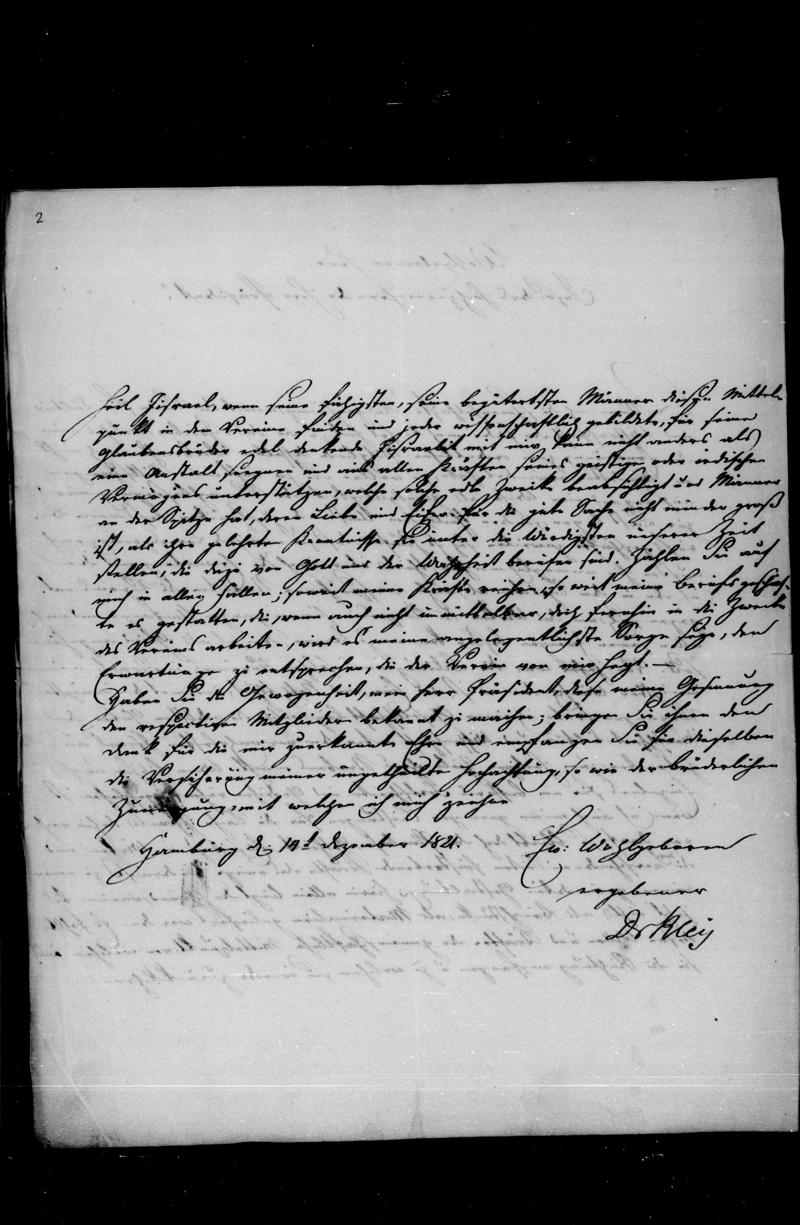 2
Heil Jisrael, wenn seine fähigsten, seine begütertsten Männer diesen Mittel-
punkt in dem Vereine finden und jeder wissenschaftlich gebildete, für seine
Glaubensbrüder edel denkende Jisraelit mit mir, kann nicht anders als
eine Anstalt segnen und aus allen Kräften seines geistigen oder irdischen
Vermögens unterstützen, welche solche edle Zwecke beabsichtigt und Männer
an der Spitze hat, deren Liebe und Eifer für die gute Sache nicht minder groß
ist, als ihre gelehrten Kenntnisse sie unter die Würdigsten unserer Zeit
stellen, die dazu von Gott und der Wahrheit berufen sind. Zählen Sie auf
mich in allen Fällen; soweit meine Kräfte reichen, so weit meine Berufsgeschäf-
te es gestatten, die, wenn auch nicht unmittelbar, doch fernhin in die Zwecke
des Vereins arbeiten, wird es meine angelegentlichste Sorge seyn, den
Erwartungen zu entsprechen, die der Verein von mir hegt. —
Haben Sie die Gewogenheit, mein Herr Präsident, diese meine Gesinnung
den respectiven Mitgliedern bekannt zu machen; bringen Sie ihnen den
Dank für die mir zuerkannte Ehre und empfangen Sie für dieselben
die Versicherung meiner ungetheilten Hochachtung, so wie der brüderlichen
Zuneigung, mit welcher ich mich zeichne
Hamburg d. 19t Dezember 1821.
Ew: Wohlgeboren
ergebener
Dr Kley